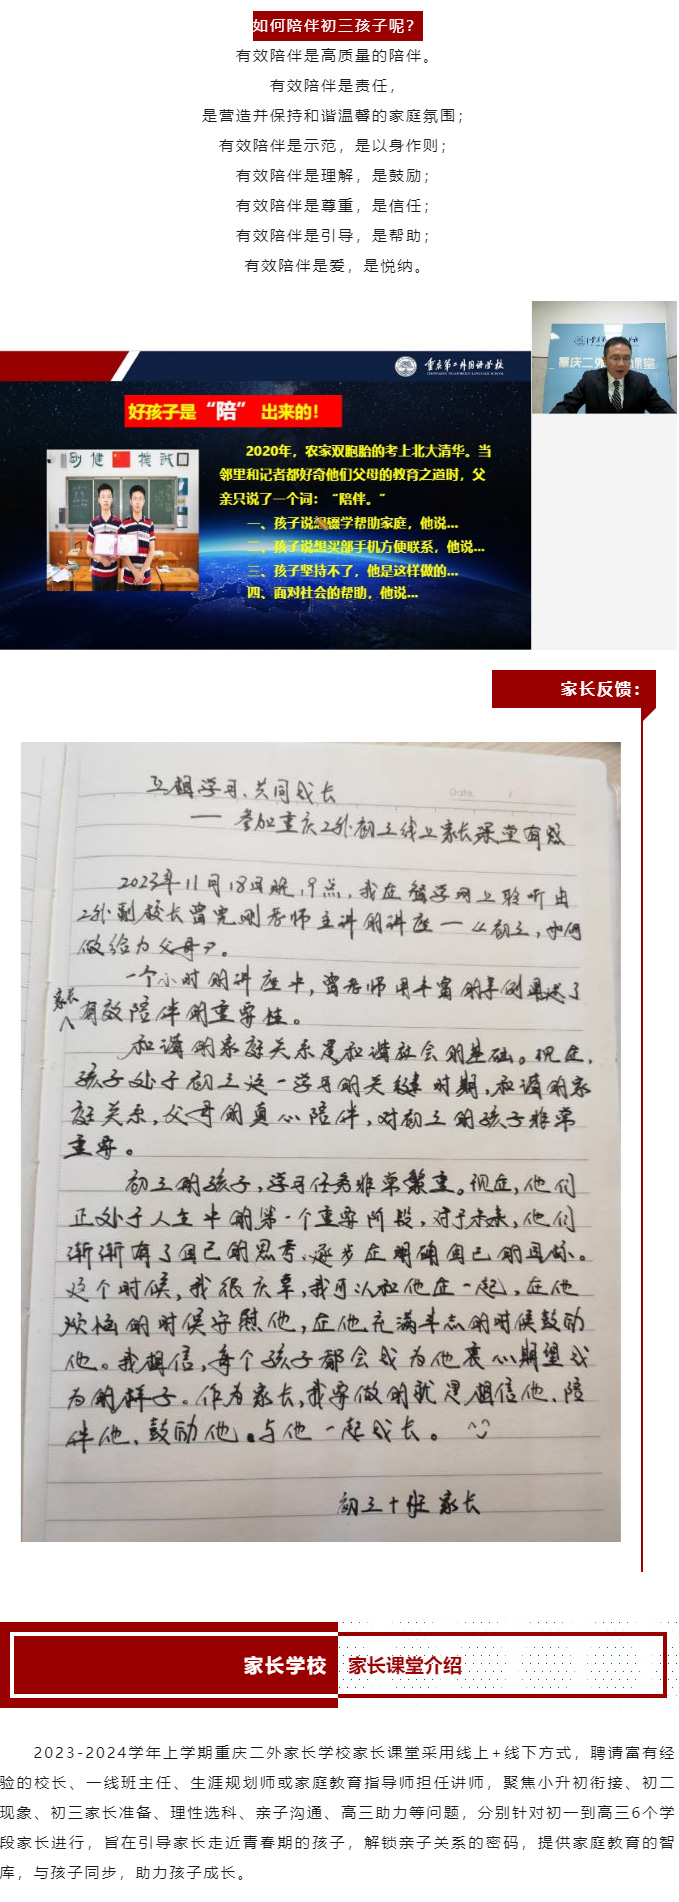 如何陪伴初三孩子呢？
有效陪伴是高质量的陪伴。
有效陪伴是责任，
是营造并保持和谐温馨的家庭氛围；
有效陪伴是示范，是以身作则；
有效陪伴是理解，是鼓励；
有效陪伴是尊重，是信任；
有效陪伴是引导，是帮助；
有效陪伴是爱，是悦纳。
重庆第二外国语学校
好孩子是“陪”出来的！
2020年，农家双胞胎的考上北大清华。当
邻里和记者都好奇他们父母的教育之道时，父
亲只说了一个词：“陪伴。”
一、孩子说想辍学帮助家庭，他说...
二、孩子说想买部手机方便联系，他说...
三、孩子坚持不了，他是这样做的...
四、面对社会的帮助，他说...
家长反馈：
互相学习、共同成长
Date.
—— 参加重庆二外初三线上家长课堂有感
2023年11月18日晚，19点，我在 网上聆听由
二外副校长曾宪刚老师主讲的讲座—《初三，如何
做给力父母》。
一个小时的讲座中，曾老师用丰富的事例 了
家长
有效陪伴的重要性。
和谐的家庭关系是和谐社会的基础。现在，
孩子处于初三这一学习的关键时期，和谐的家
庭关系，父母的真心陪伴，对初三的孩子非常
重要。
初三的孩子，学习任务非常繁重。现在，他们
正处于人生中的第一个重要阶段，对于未来，他们
渐渐有了自己的思考、逐步在明确自己的目标。
这个时候，我很庆幸，我可以和他在一起，在他
烦恼的时候安慰他，在他充满斗志的时候鼓励
他。我相信，每个孩子都会成为他衷心期望成
为的样子。作为家长，我要做的就是相信他、陪
伴他、鼓励他。与他一起成长。
初三十班 家长
家长学校 家长课堂介绍
2023-2024学年上学期重庆二外家长学校家长课堂采用线上+线下方式，聘请富有经
验的校长、一线班主任、生涯规划师或家庭教育指导师担任讲师，聚焦小升初衔接、初二
现象、初三家长准备、理性选科、亲子沟通、高三助力等问题，分别针对初一到高三6个学
段家长进行，旨在引导家长走近青春期的孩子，解锁亲子关系的密码，提供家庭教育的智
库，与孩子同步，助力孩子成长。